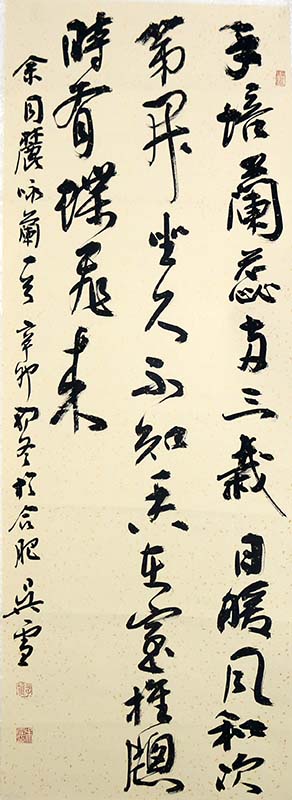 手培蘭蕊两三栽日暖風和次
第開坐久不知香在室推窗
時有蝶飛來
余同麓咏蘭一首辛卯初冬於合肥吴雪